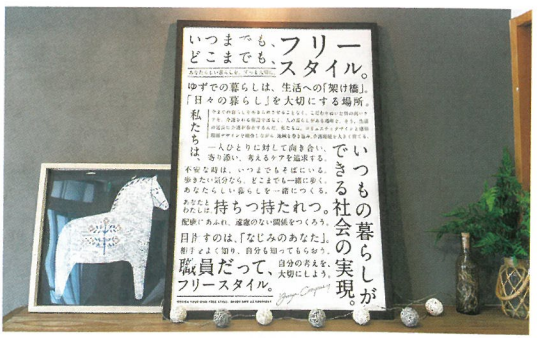 いつまでも、
どこまでも、
フリー
スタイル。
ゆずでの暮らしは、生活への「架け橋」。
「日々の暮らし」を大切にする場所。
私たちは、
一人ひとりに対して向き合い、
寄り添い、考えるケアを追求する。
不安な時は、いつまでもそばにいる。
歩きたい気分なら、どこまでも一緒に歩く。
あなたらしい暮らしを一緒につくる。
あなたと
わたしは、
持ちつ持たれつ。
配慮にあふれ、遠慮のない関係をつくろう。
目指すのは、「なじみのあなた」。
相手をよく知り、自分も知ってもらおう。
職員だって、
フリースタイル。
自分の考えを、
大切にしよう。
いつもの暮らしが
できる社会の実現。